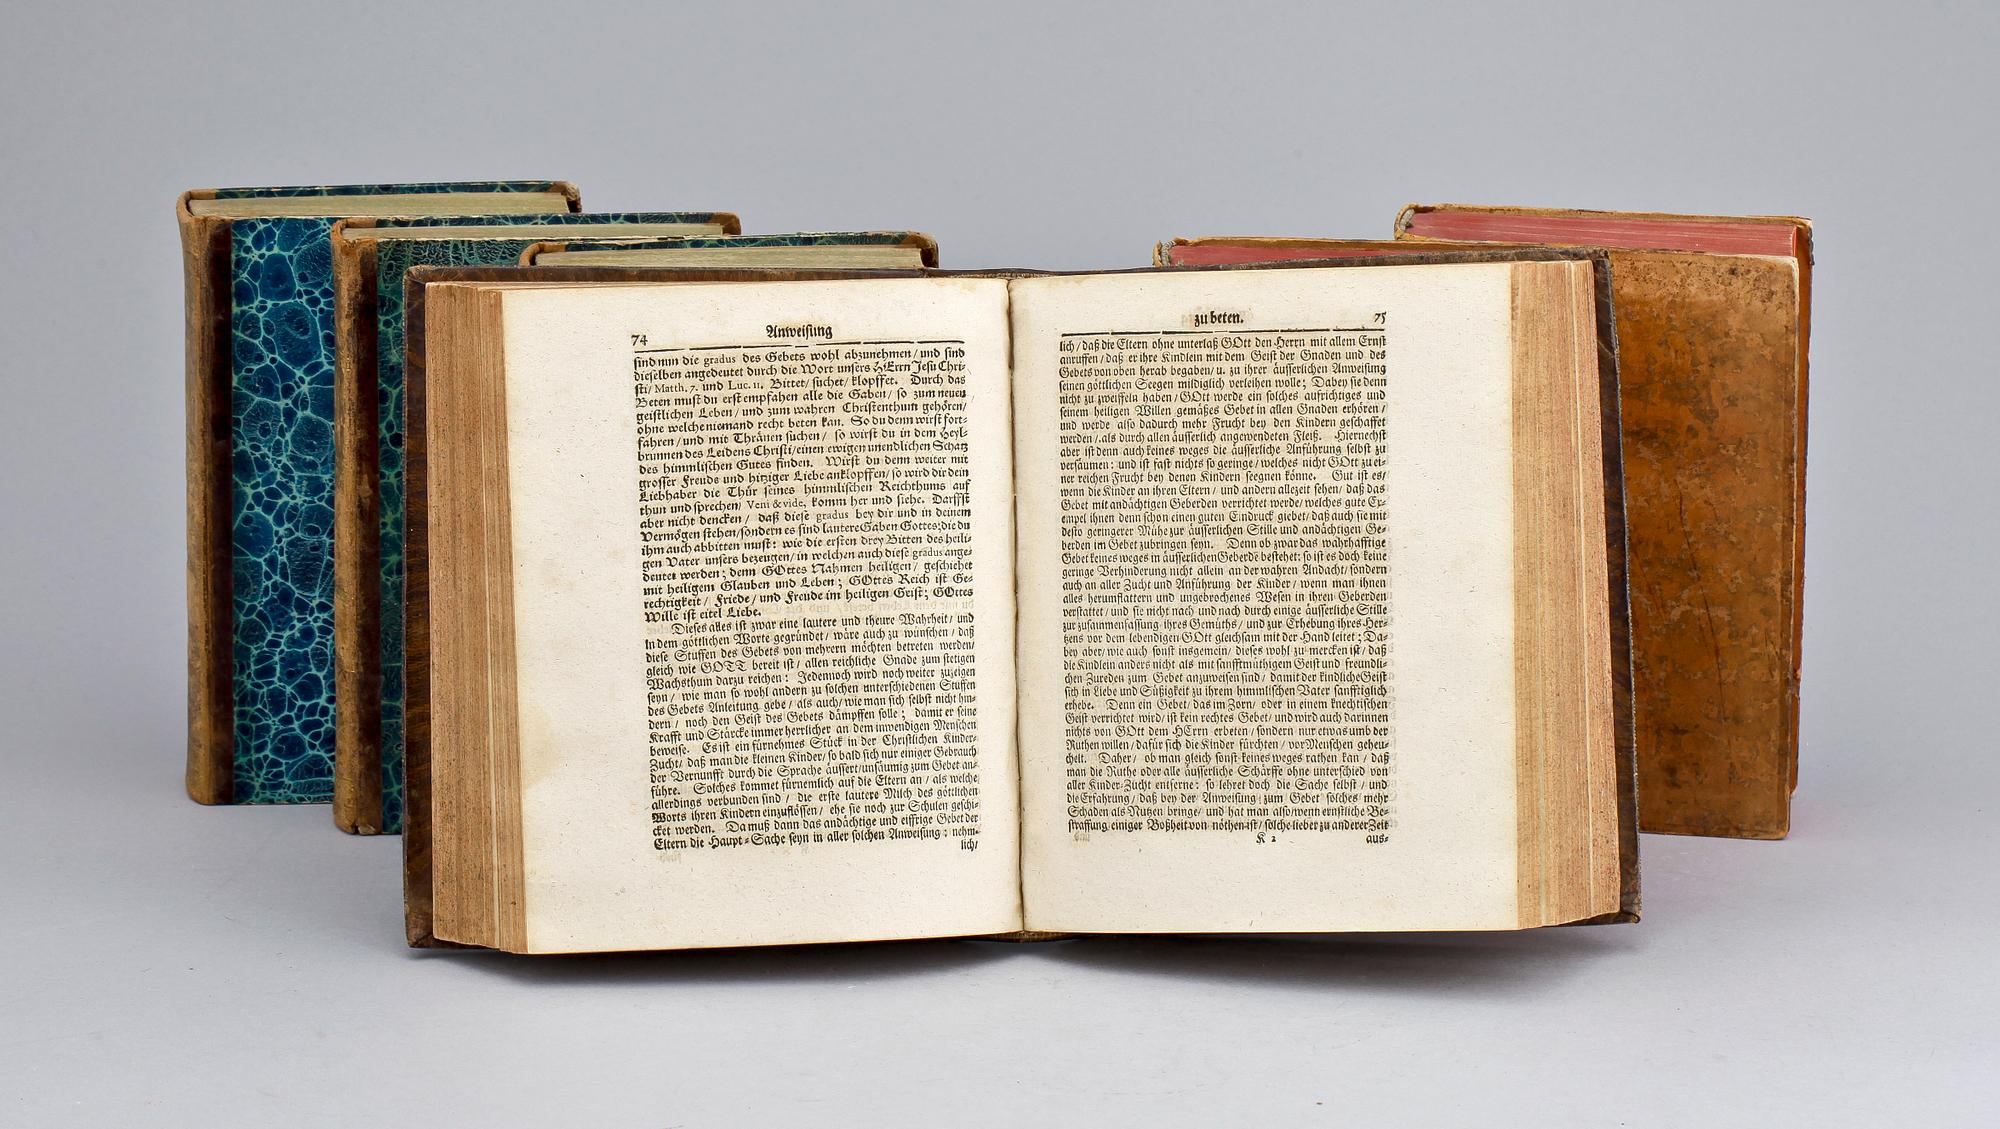 74 Anweisung
sind nun die gradus des Gebets wohl abzunehmen / und sind
dieselben angedeutet durch die Wort unsers HErrn Jesu Chri-
sti / Matth. 7. und Luc. 11. Bittet / suchet / klopffet. Durch das
Beten must du erst empfahen alle die Gaben / so zum neuen
geistlichen Leben / und zum wahren Christenthum gehören /
ohne welche niemand recht beten kan. So du denn wirst fort-
fahren / und mit Thränen suchen / so wirst du in dem Heyl-
brunnen des Leidens Christi / einen ewigen unendlichen Schatz
des himmlischen Gutes finden. Wirst du denn weiter mit
grosser Freude und hitziger Liebe anklopffen / so wird dir dein
Liebhaber die Thür seines himmlischen Reichthums auf
thun und sprechen / Veni & vide, komm her und siehe. Darffst
aber nicht dencken / daß diese gradus bey dir und in deinem
Vermögen stehen / sondern es sind lautere Gaben Gottes; die du
ihm auch abbitten must: wie die ersten drey Bitten des heili-
gen Vater unsers bezeugen / in welchen auch diese gradus ange-
deutet werden; denn GOttes Nahmen heiligen / geschiehet
mit heiligem Glauben und Leben; GOttes Reich ist Ge-
rechtigkeit / Friede / und Freude im heiligen Geist; GOttes
Wille ist eitel Liebe.
Dieses alles ist zwar eine lautere und theure Wahrheit / und
in dem göttlichen Worte gegründet / wäre auch zu wünschen / daß
diese Stuffen des Gebets von mehrern möchten betreten werden /
gleich wie GOTT bereit ist / allen reichliche Gnade zum stetigen
Wachsthum darzu reichen: Jedennoch wird noch weiter zuzeigen
seyn / wie man so wohl andern zu solchen unterschiedenen Stuffen
des Gebets Anleitung gebe / als auch / wie man sich selbst nicht hin-
dern / noch den Geist des Gebets dämpffen solle; damit er seine
Krafft und Stärcke immer herrlicher an dem inwendigen Menschen
beweise. Es ist ein fürnehmes Stück in der Christlichen Kinder-
Zucht / daß man die kleinen Kinder / so bald sich nur einiger Gebrauch
der Vernunfft durch die Sprache äussert / unsäumig zum Gebet an-
führe. Solches kommet fürnemlich auf die Eltern an / als welche
allerdings verbunden sind / die erste lautere Milch des göttlichen
Worts ihren Kindern einzuflössen / ehe sie noch zur Schulen geschi-
cket werden. Da muß dann das andächtige und eiffrige Gebet der
Eltern die Haupt-Sache seyn in aller solchen Anweisung: nehm-
lich /
zu beten. 75
lich / daß die Eltern ohne unterlaß GOtt den Herrn mit allem Ernst
anruffen / daß er ihre Kindlein mit dem Geist der Gnaden und des
Gebets von oben herab begaben / u. zu ihrer äusserlichen Anweisung
seinen göttlichen Seegen mildiglich verleihen wolle; Dabey sie denn
nicht zu zweiffeln haben / GOtt werde ein solches aufrichtiges und
seinem heiligen Willen gemäßes Gebet in allen Gnaden erhören /
und werde also dadurch mehr Frucht bey den Kindern geschaffet
werden / als durch allen äusserlich angewendeten Fleiß. Hiernechst
aber ist denn auch keines weges die äusserliche Anführung selbst zu
versäumen: und ist fast nichts so geringe / welches nicht GOtt zu ei-
ner reichen Frucht bey denen Kindern seegnen könne. Gut ist es /
wenn die Kinder an ihren Eltern / und andern allezeit sehen / daß das
Gebet mit andächtigen Geberden verrichtet werde / welches gute Ex-
empel ihnen denn schon einen guten Eindruck giebet / daß auch sie mit
desto geringerer Mühe zur äusserlichen Stille und andächtigen Ge-
berden im Gebet zubringen seyn. Denn ob zwar das wahrhafftige
Gebet keines weges in äusserlichen Geberdē bestehet: so ist es doch keine
geringe Verhinderung nicht allein an der wahren Andacht / sondern
auch an aller Zucht und Anführung der Kinder / wenn man ihnen
alles herumflattern und ungebrochenes Wesen in ihren Geberden
verstattet / und sie nicht nach und nach durch einige äusserliche Stille
zur zusammenfassung ihres Gemüths / und zur Erhebung ihres Her-
tzens vor dem lebendigen GOtt gleichsam mit der Hand leitet; Da-
bey aber / wie auch sonst insgemein / dieses wohl zu mercken ist / daß
die Kindlein anders nicht als mit sanfftmüthigem Geist und freundli-
chen Zureden zum Gebet anzuweisen sind / damit der kindliche Geist
sich in Liebe und Süßigkeit zu ihrem himmlischen Vater sanfftiglich
erhebe. Denn ein Gebet / das im Zorn / oder in einem knechtischen
Geist verrichtet wird / ist kein rechtes Gebet / und wird auch darinnen
nichts von GOtt dem HErrn erbeten / sondern nur etwas umb der
Ruthen willen / dafür sich die Kinder fürchten / vor Menschen geheu-
chelt. Daher / ob man gleich sonst keines weges rathen kan / daß
man die Ruthe oder alle äusserliche Schärffe ohne unterschied von
aller Kinder-Zucht entferne: so lehret doch die Sache selbst / und
die Erfahrung / daß bey der Anweisung zum Gebet solches mehr
Schaden als Nutzen bringe / und hat man also / wenn ernstliche Be-
straffung einiger Boßheit von nöthen ist / solche lieber zu anderer Zeit
K 2 aus-